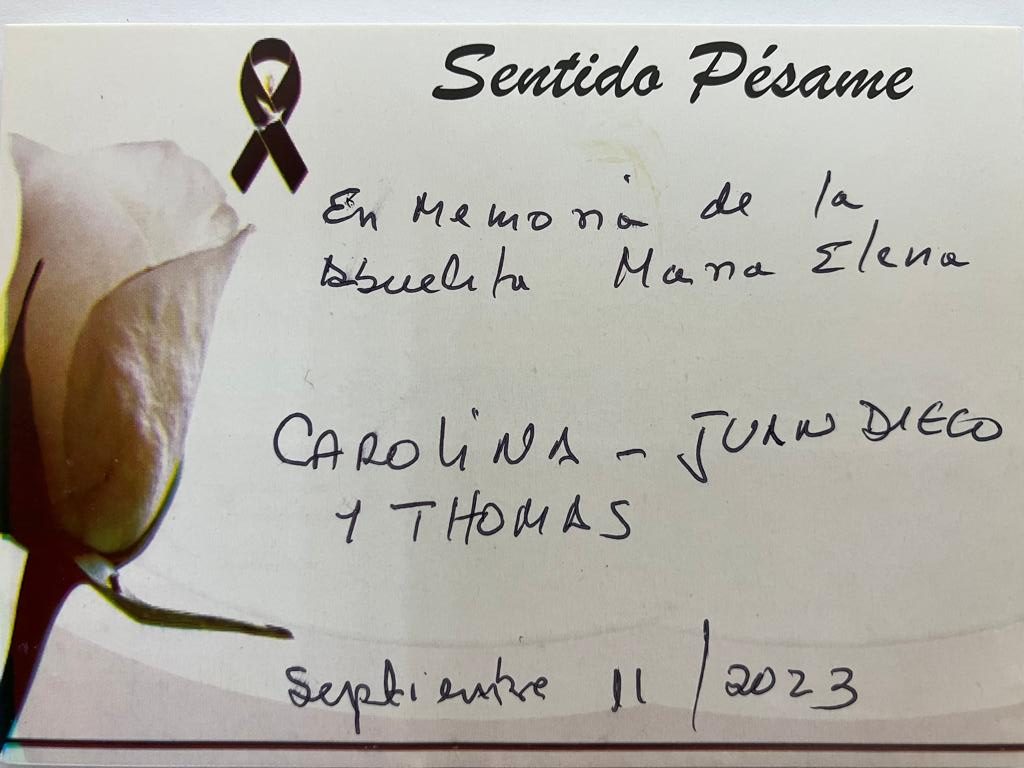 Sentido Pésame
En Memoria de la
Abuelita Maria Elena
CAROLINA - JUAN DIEGO
Y THOMAS
Septiembre 11/2023